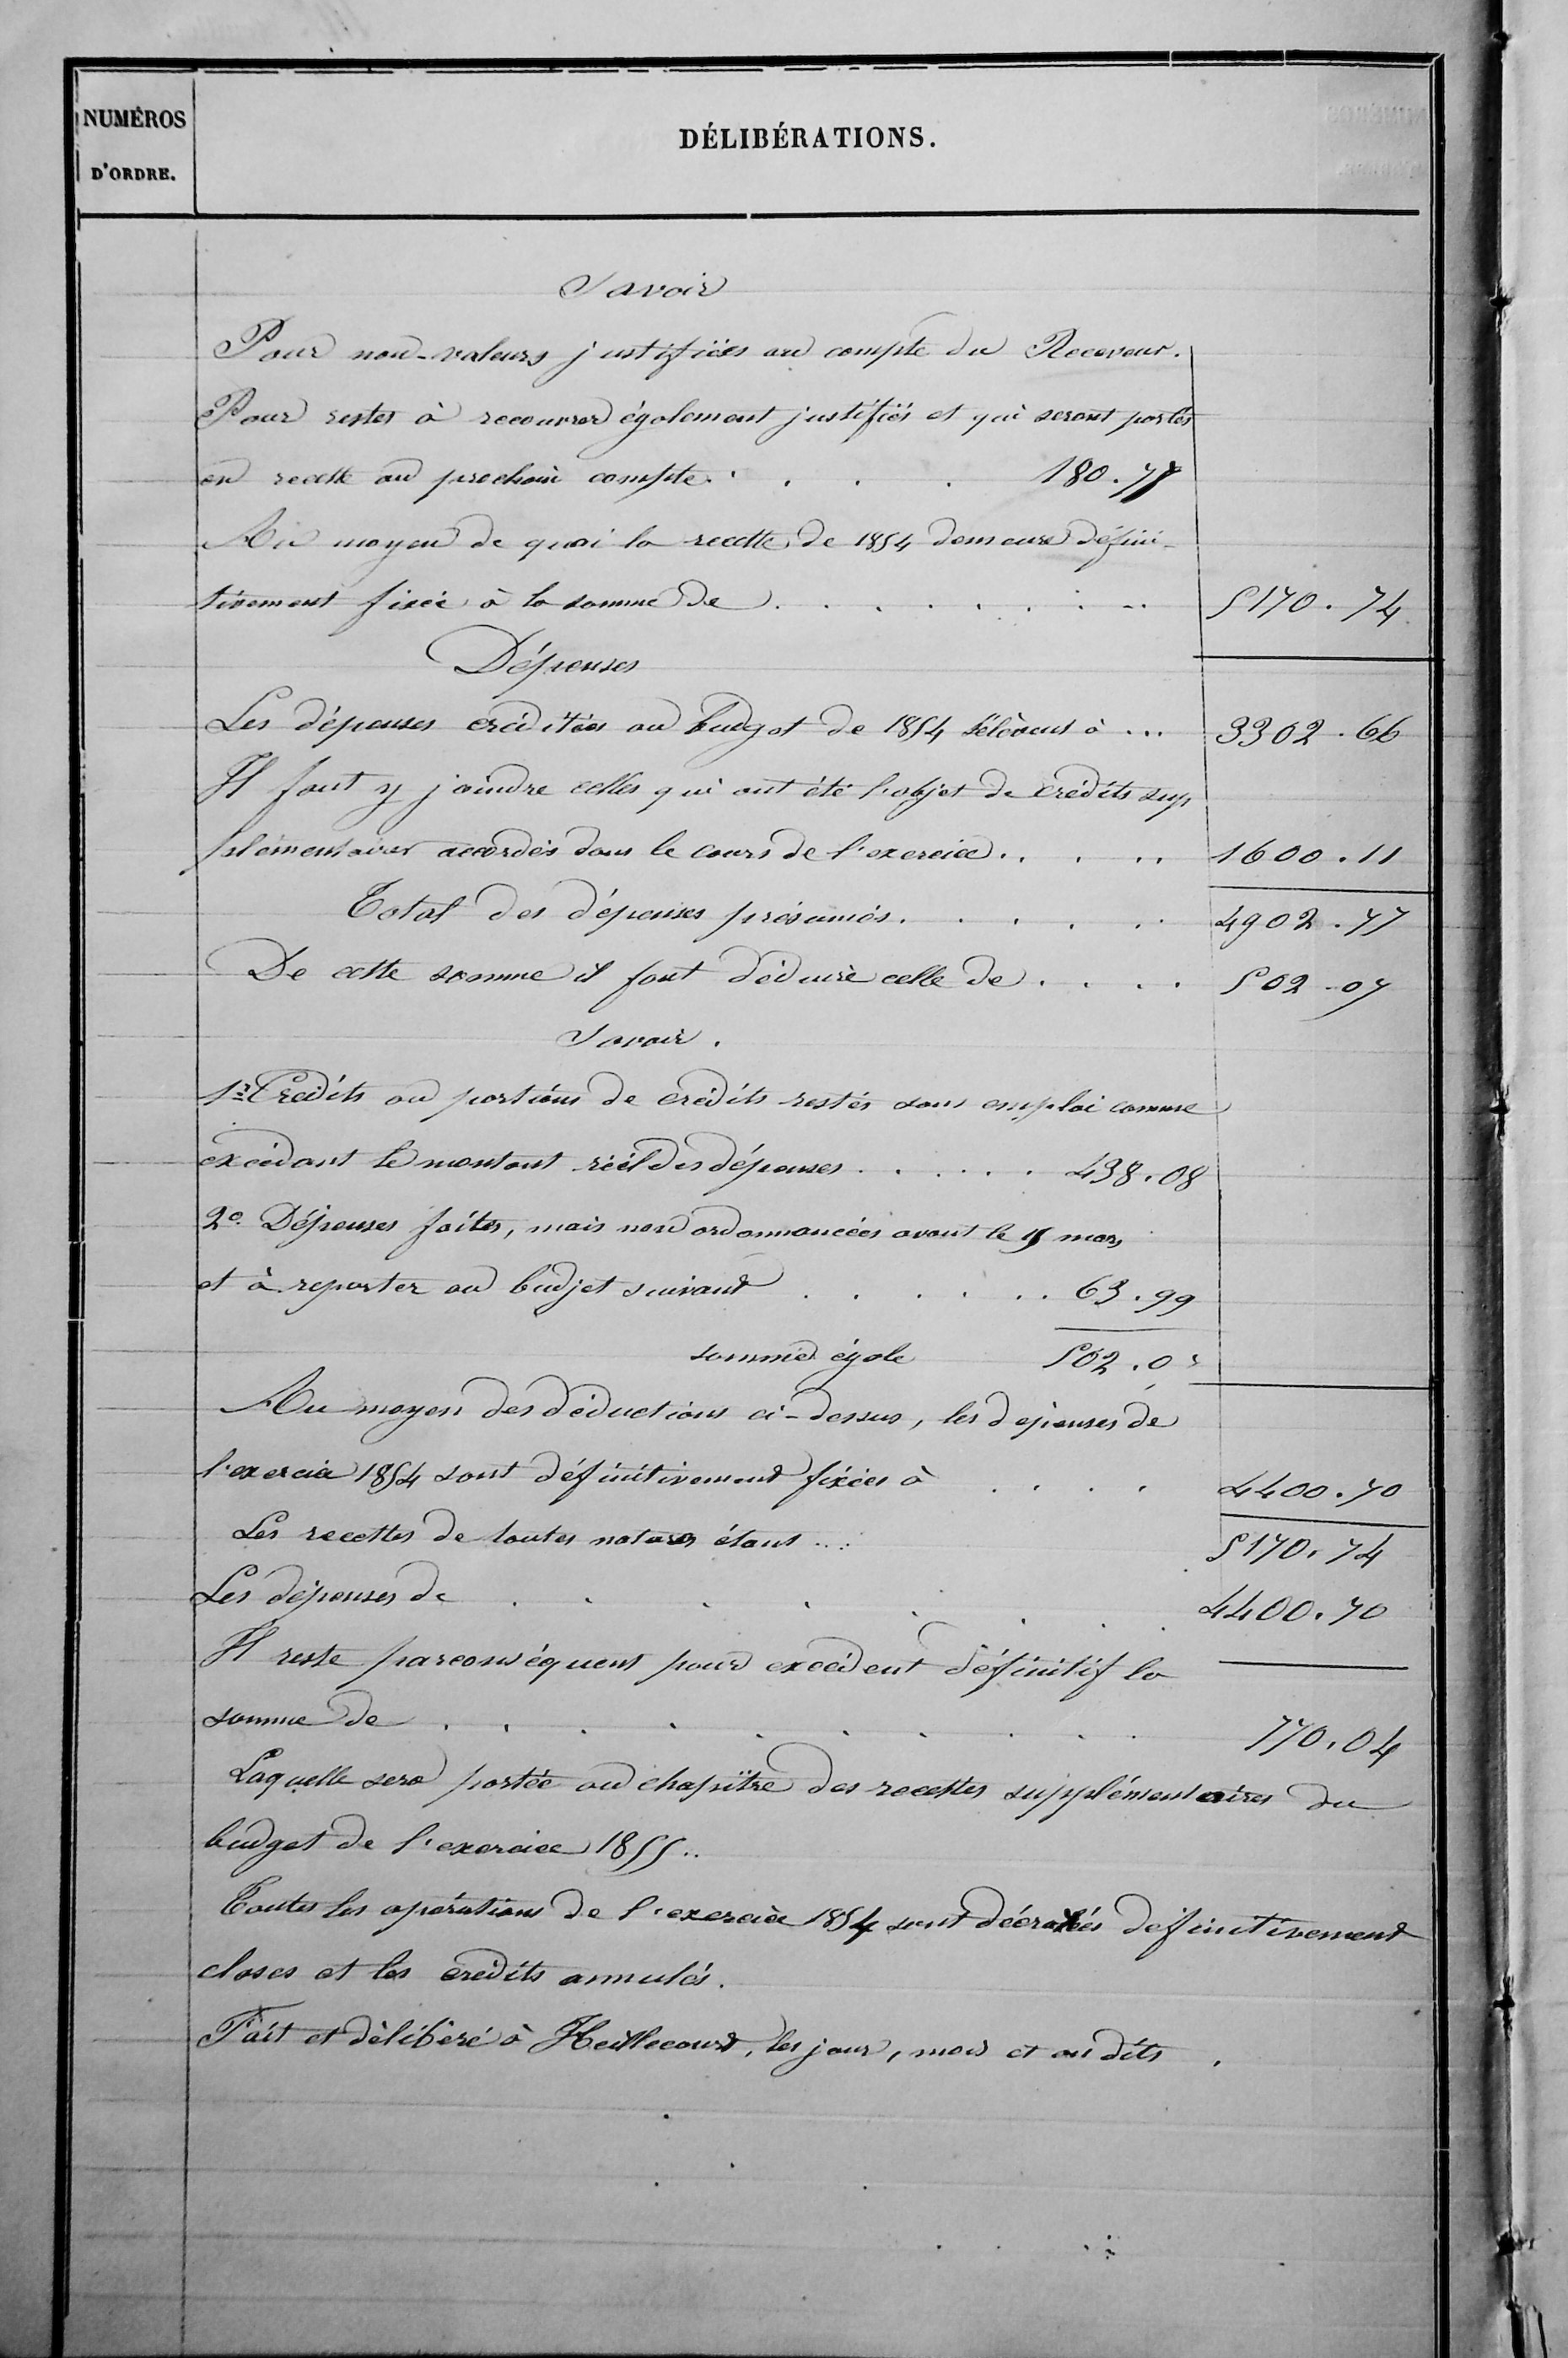 NUMÉROS
D'ORDRE.
DÉLIBÉRATIONS.
Savoir
Pour non-valeurs justifiées au compte du Receveur.
Pour restes à recouvrer également justifiés et qui seront portés
en recette au prochain compte . . . . 180.77
Au moyen de quoi la recette de 1854 demeure défini-
tivement fixée à la somme de . . . . . . . . 5170.74
Dépenses
Les dépenses créditées au budget de 1854 s'élèvent à ... 3302.66
Il faut y joindre celles qui ont été l'objet de crédits sup
plémentaires accordés dans le cours de l'exercice . . . . . 1600.11
Total des dépenses présumés . . . . . 4902.77
De cette somme il faut déduire celle de . . . . 502-07
Savoir.
1º Crédits ou portions de crédits restés sans emploi comme
excédant le montant réel des dépenses . . . . . . 438.08
2º Dépenses faites, mais non ordonnancées avant le 15 mars
et à reporter au budjet suivant . . . . . . 63.99
somme égale 502.0
Au moyen des déductions ci-dessus, les dépenses de
l'exercice 1854 sont définitivement fixées à . . . . 4400.70
Les recettes de toutes natures étant ... 5170.74
Les dépenses de . . . . . . . 4400.70
Il reste parconséquent pour excédent définitif la
somme de . . . . . . . . . 770.04
Laquelle sera portée au chapitre des recettes supplémentaires du
budget de l'exercice 1855..
Toutes les opérations de l'exercice 1854 sont définitivement
closes et les crédits annulés.
Fait et délibéré à Heillecourt, les jour, mois et an dits .